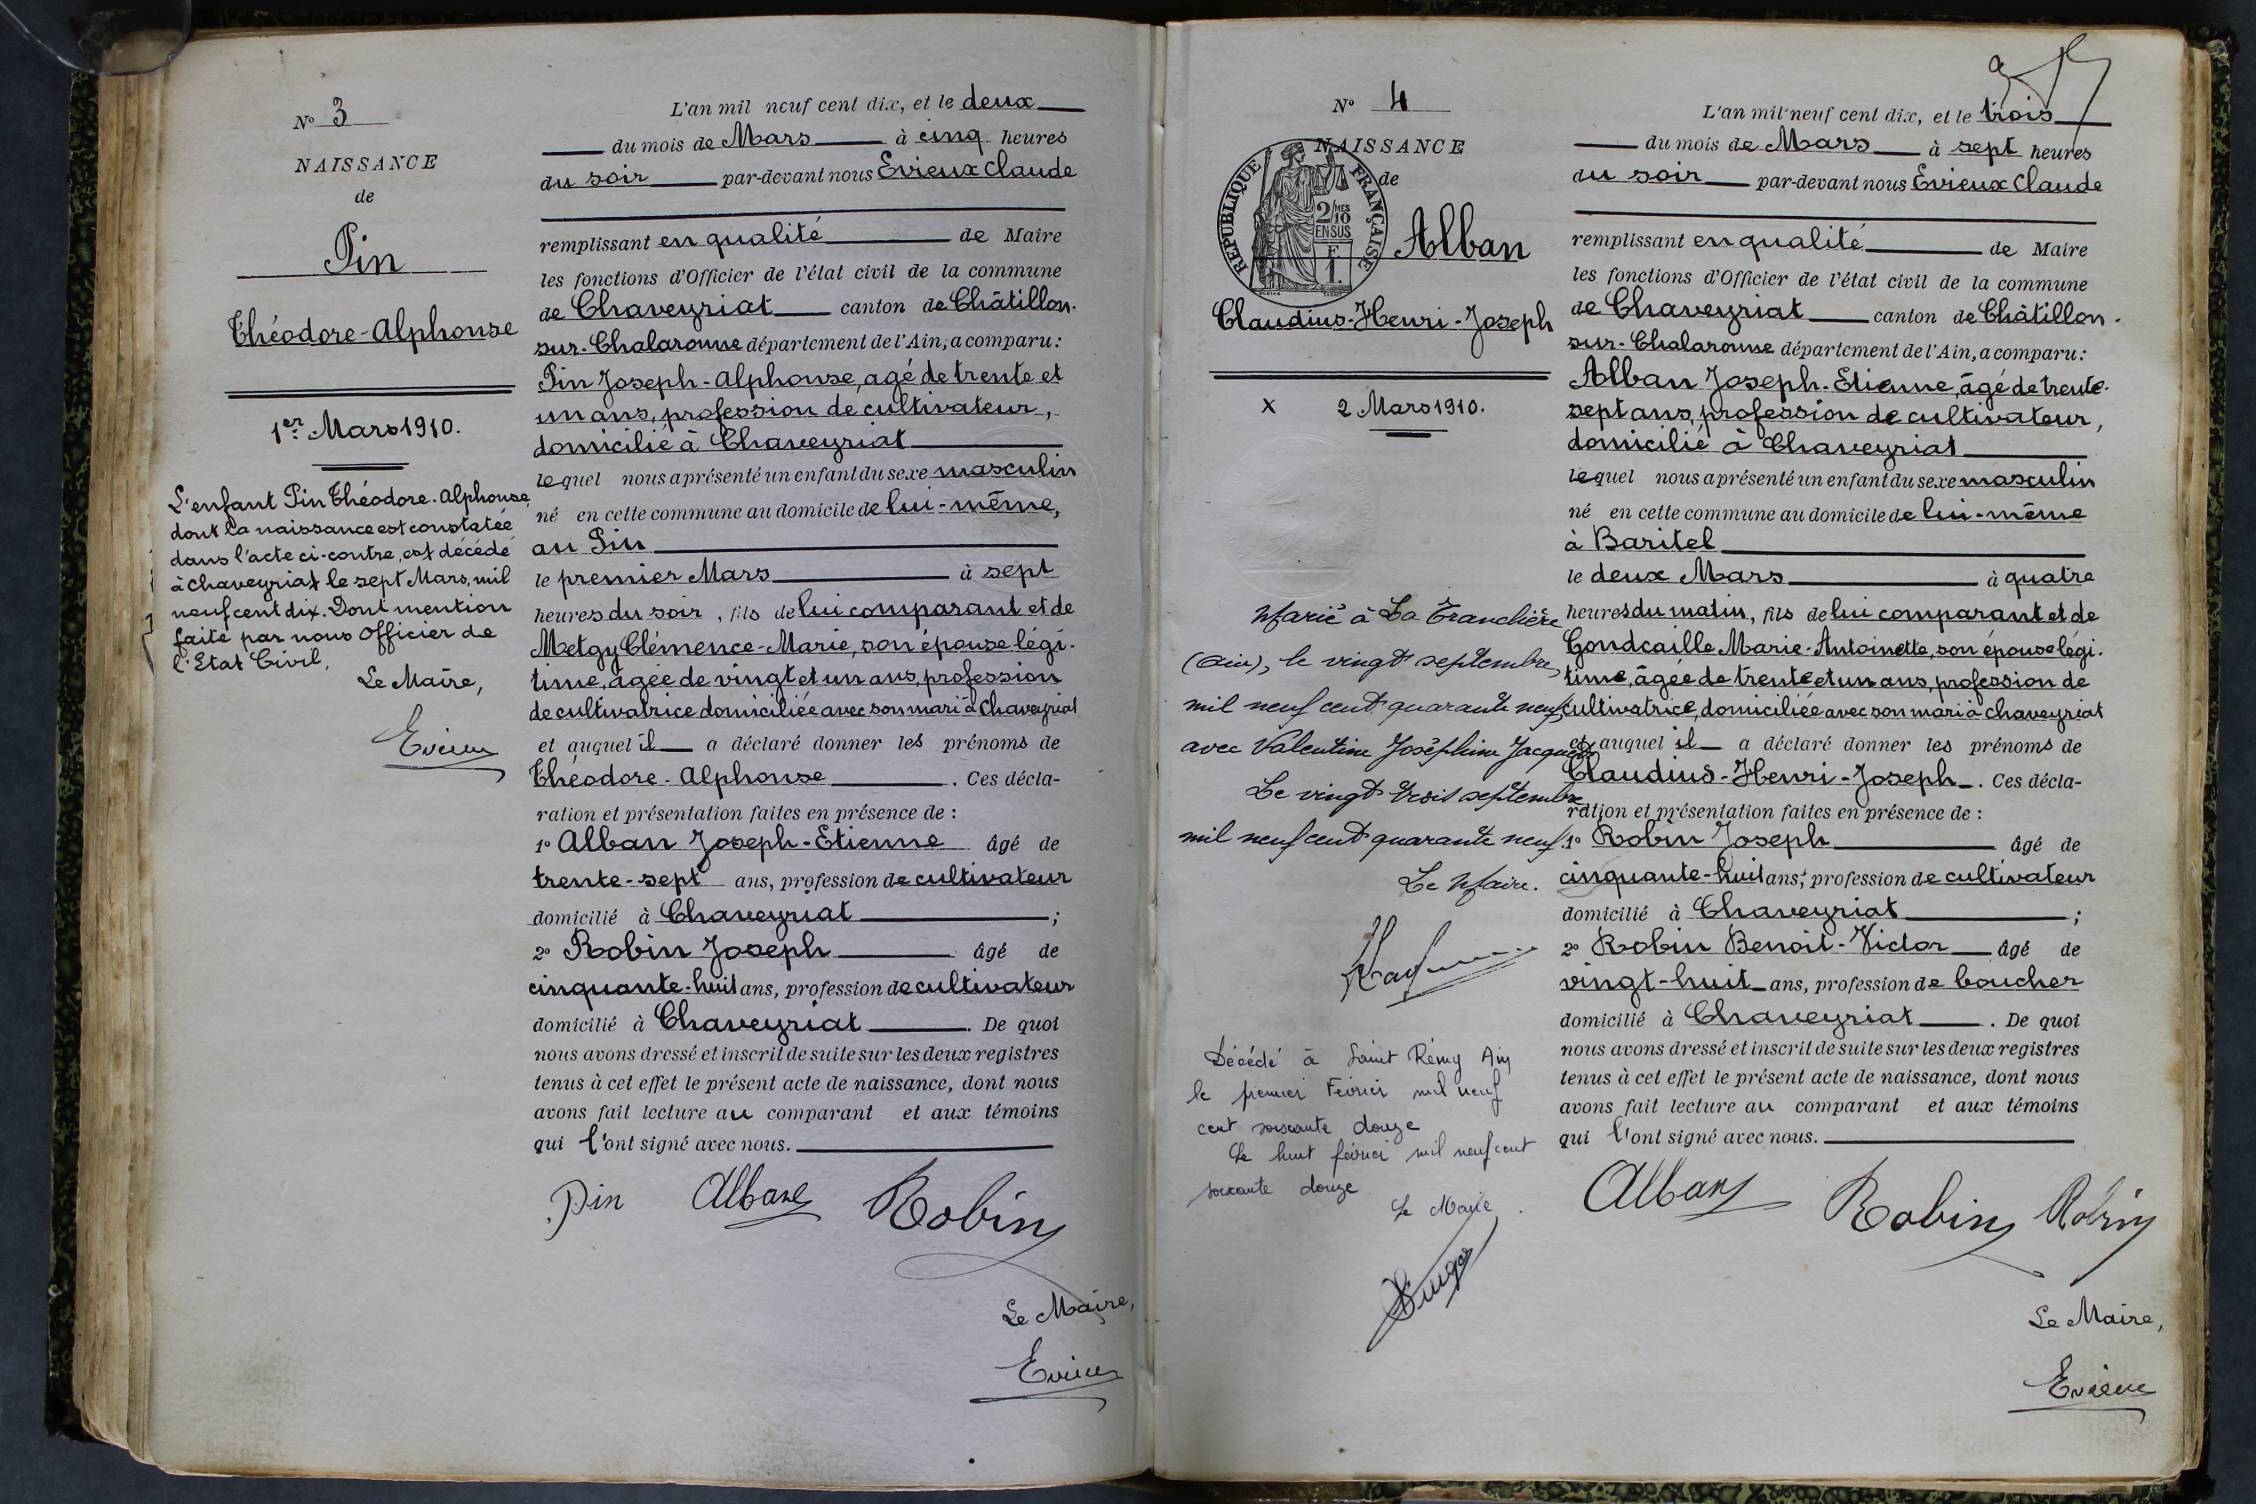 Nº 3
NAISSANCE
de
Pin
Théodore-Alphonse
1er Mars 1910.
L'enfant Pin Théodore-Alphonse,
dont la naissance est constatée
dans l'acte ci-contre, est décédé
à Chaveyriat le sept Mars, mil
neuf cent dix. Dont mention
faite par nous Officier de
l'Etat Civil,
Le Maire,
Evieux
L'an mil neuf cent dix, et le deux
du mois de Mars à cinq heures
du soir par-devant nous Evieux Claude
remplissant en qualité de Maire
les fonctions d'Officier de l'état civil de la commune
de Chaveyriat canton de Châtillon-
sur-Chalaronne département de l'Ain, a comparu :
Pin Joseph-Alphonse, agé de trente et
un ans, profession de cultivateur,
domicilié à Chaveyriat
lequel nous a présenté un enfant du sexe masculin
né en cette commune au domicile de lui-même,
au Pin
le premier Mars à sept
heures du soir, fils de lui comparant et de
Metgy Clémence-Marie, son épouse légi-
time, âgée de vingt et un ans, profession
de cultivatrice domiciliée avec son mari à Chaveyriat
et auquel il a déclaré donner les prénoms de
Théodore-Alphonse. Ces décla-
ration et présentation faites en présence de :
1º Alban Joseph-Etienne âgé de
trente-sept ans, profession de cultivateur
domicilié à Chaveyriat ;
2º Robin Joseph âgé de
cinquante-huit ans, profession de cultivateur
domicilié à Chaveyriat. De quoi
nous avons dressé et inscrit de suite sur les deux registres
tenus à cet effet le présent acte de naissance, dont nous
avons fait lecture au comparant et aux témoins
qui l'ont signé avec nous.
Pin Alban Robin
Le Maire,
Evieux
Nº 4
NAISSANCE
de
RÉPUBLIQUE FRANÇAISE
2/10MES
EN SUS
F
1.
Alban
Claudius-Henri-Joseph
x 2 Mars 1910.
Marié à La Tranclière
(Ain), le vingt septembre
mil neuf cent quarante neuf
avec Valentine Joséphine Jacquet
Le vingt trois septembre
mil neuf cent quarante neuf.
Le Maire.
Décédé à Saint Rémy Ain
le premier Février mil neuf
cent soixante douze
Le huit février mil neuf cent
soixante douze
Le Maire.
L'an mil neuf cent dix, et le trois
du mois de Mars à sept heures
du soir par-devant nous Evieux Claude
remplissant en qualité de Maire
les fonctions d'Officier de l'état civil de la commune
de Chaveyriat canton de Châtillon-
sur-Chalaronne département de l'Ain, a comparu :
Alban Joseph-Etienne, âgé de trente-
sept ans, profession de cultivateur,
domicilié à Chaveyriat
lequel nous a présenté un enfant du sexe masculin
né en cette commune au domicile de lui-même
à Baritel
le deux Mars à quatre
heures du matin, fils de lui comparant et de
Gondcaille Marie-Antoinette, son épouse légi-
time, âgée de trente et un ans, profession de
cultivatrice, domiciliée avec son mari à Chaveyriat
et auquel il a déclaré donner les prénoms de
Claudius-Henri-Joseph. Ces décla-
ration et présentation faites en présence de :
1º Robin Joseph âgé de
cinquante-huit ans, profession de cultivateur
domicilié à Chaveyriat ;
2º Robin Benoit-Victor âgé de
vingt-huit ans, profession de boucher
domicilié à Chaveyriat. De quoi
nous avons dressé et inscrit de suite sur les deux registres
tenus à cet effet le présent acte de naissance, dont nous
avons fait lecture au comparant et aux témoins
qui l'ont signé avec nous.
Alban Robin Robin
Le Maire,
Evieux